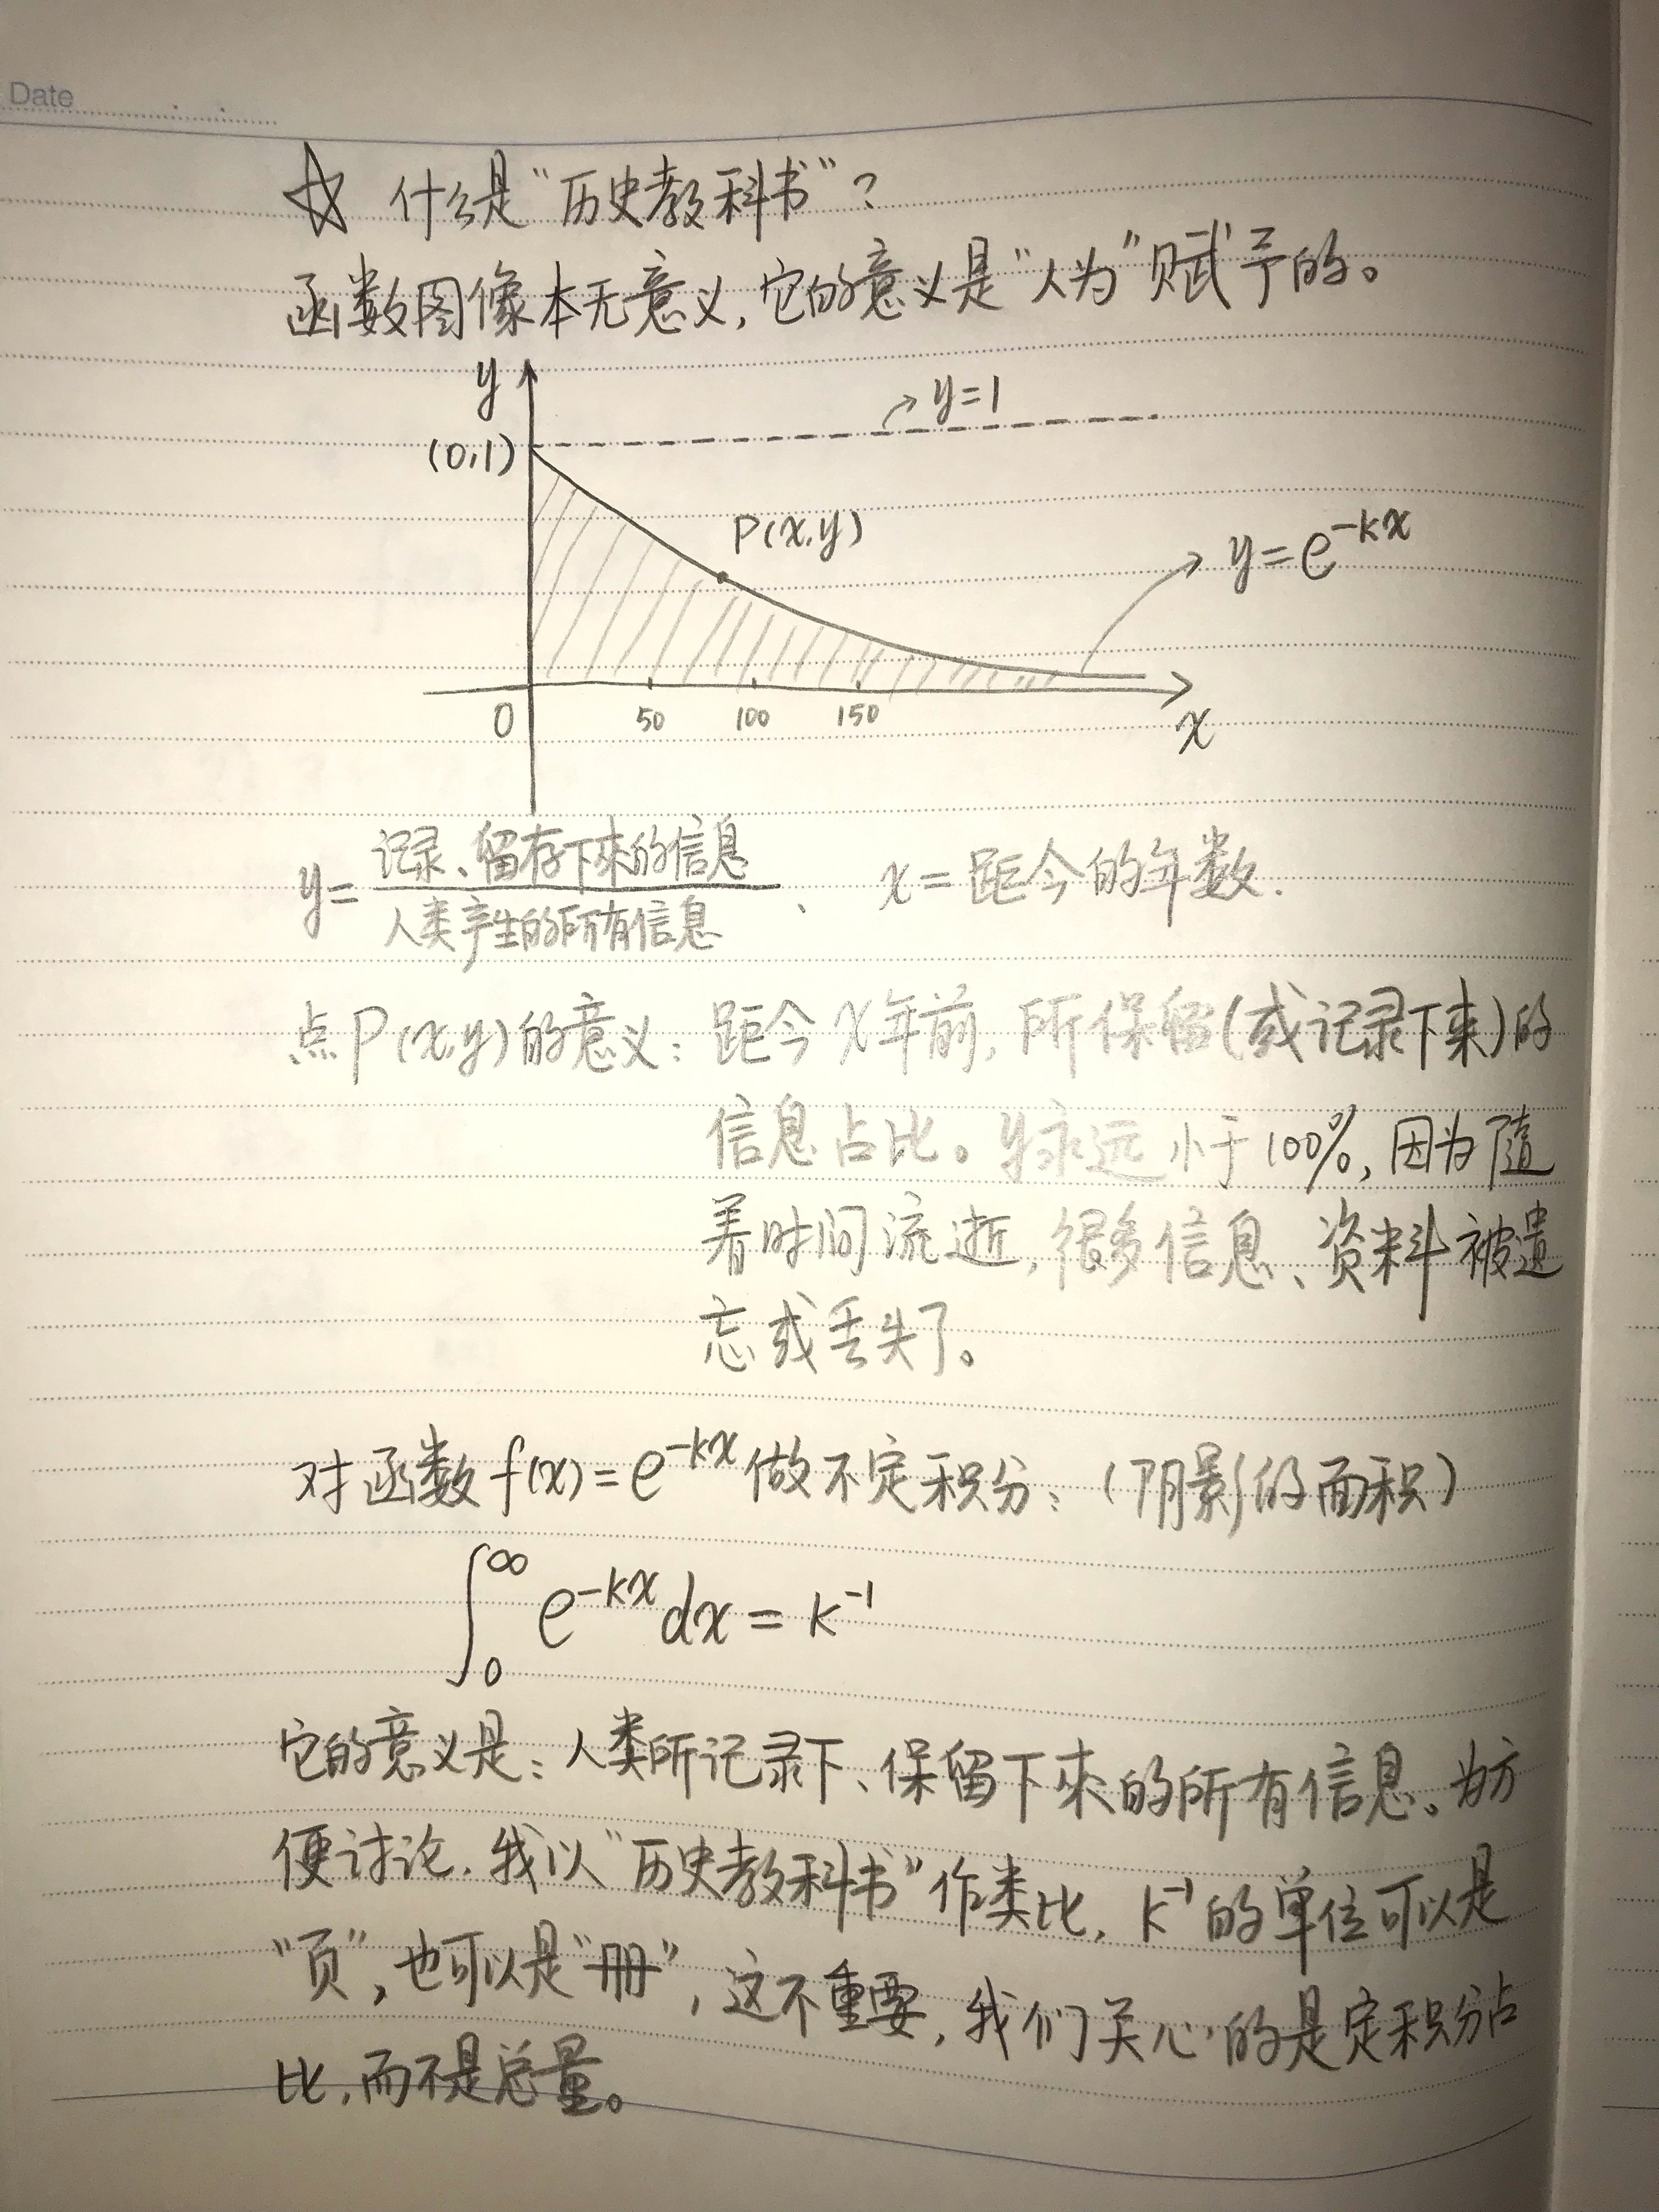 Date
☆ 什么是“历史教科书”?
函数图像本无意义,它的意义是“人为”赋予的。
y
y=1
(0,1)
P(x,y)
y=e^{-kx}
0 50 100 150 x
y= 记录、留存下來的信息 / 人类产生的所有信息 、 x=距今的年数.
点P(x,y)的意义:距今x年前,所保留(或记录下来)的
信息占比。y永远小于100%,因为随
着时间流逝,很多信息、资料被遗
忘或丢失了。
对函数f(x)=e^{-kx}做不定积分:(阴影的面积)
∫_0^∞ e^{-kx}dx=k^{-1}
它的意义是:人类所记录下、保留下來的所有信息。为方
便讨论,我以“历史教科书”作类比,k^{-1}的单位可以是
“页”,也可以是“册”,这不重要,我们关心的是定积分占
比,而不是总量。